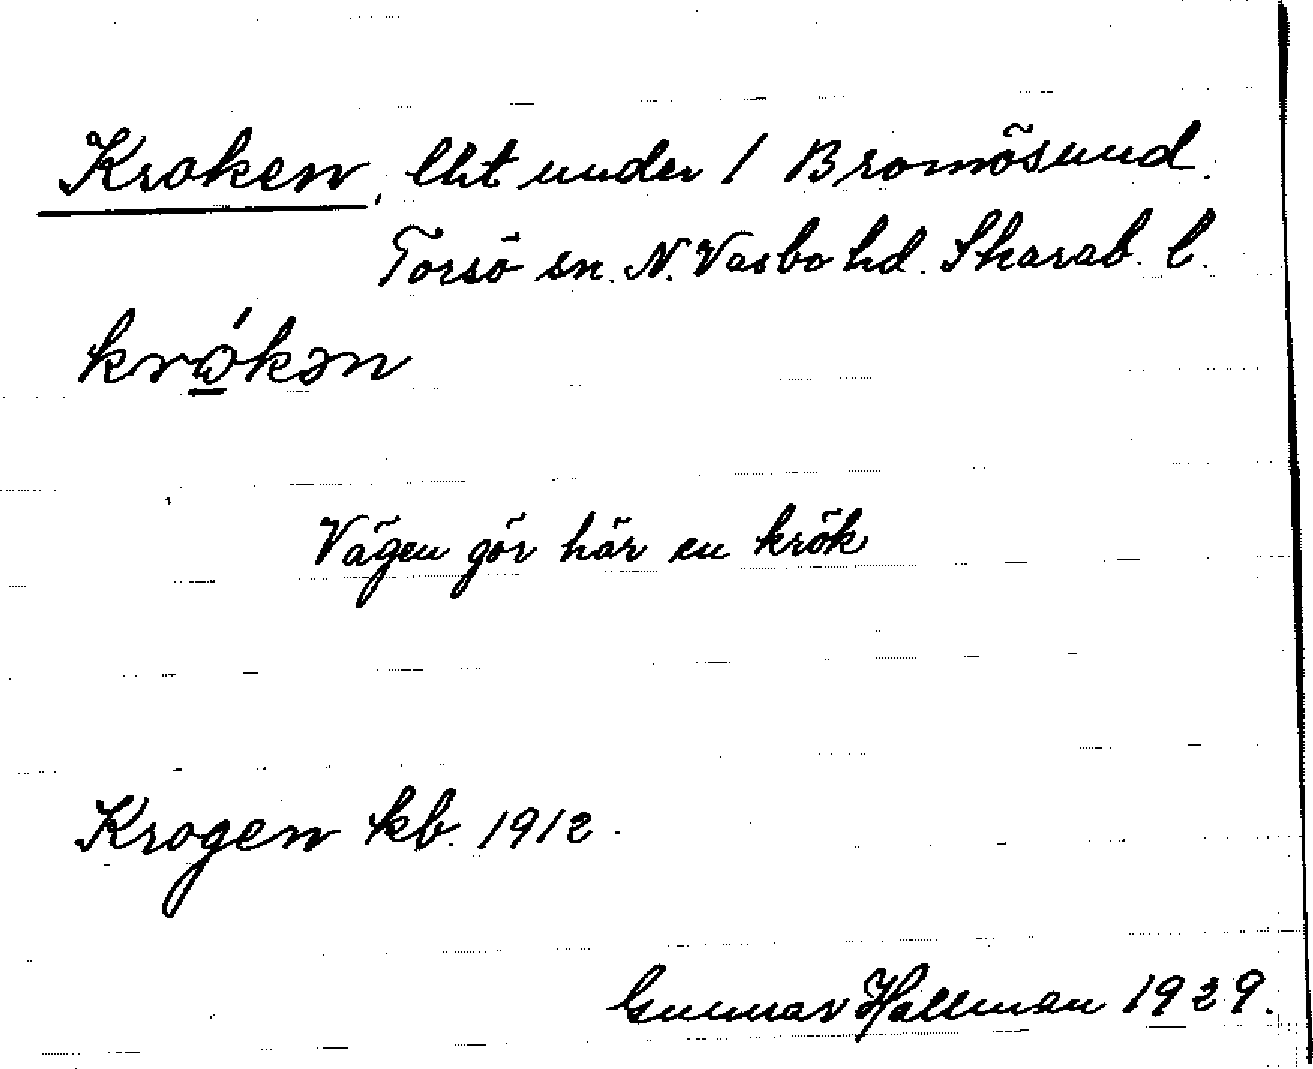 Kroken, lht under 1 Bromösund.
Torsö sn. N. Vasbo hd. Skarab. l.
krώ̱kən
Vägen gör här en krök
Krogen kb. 1912.
Gunnar Hallman 1929.